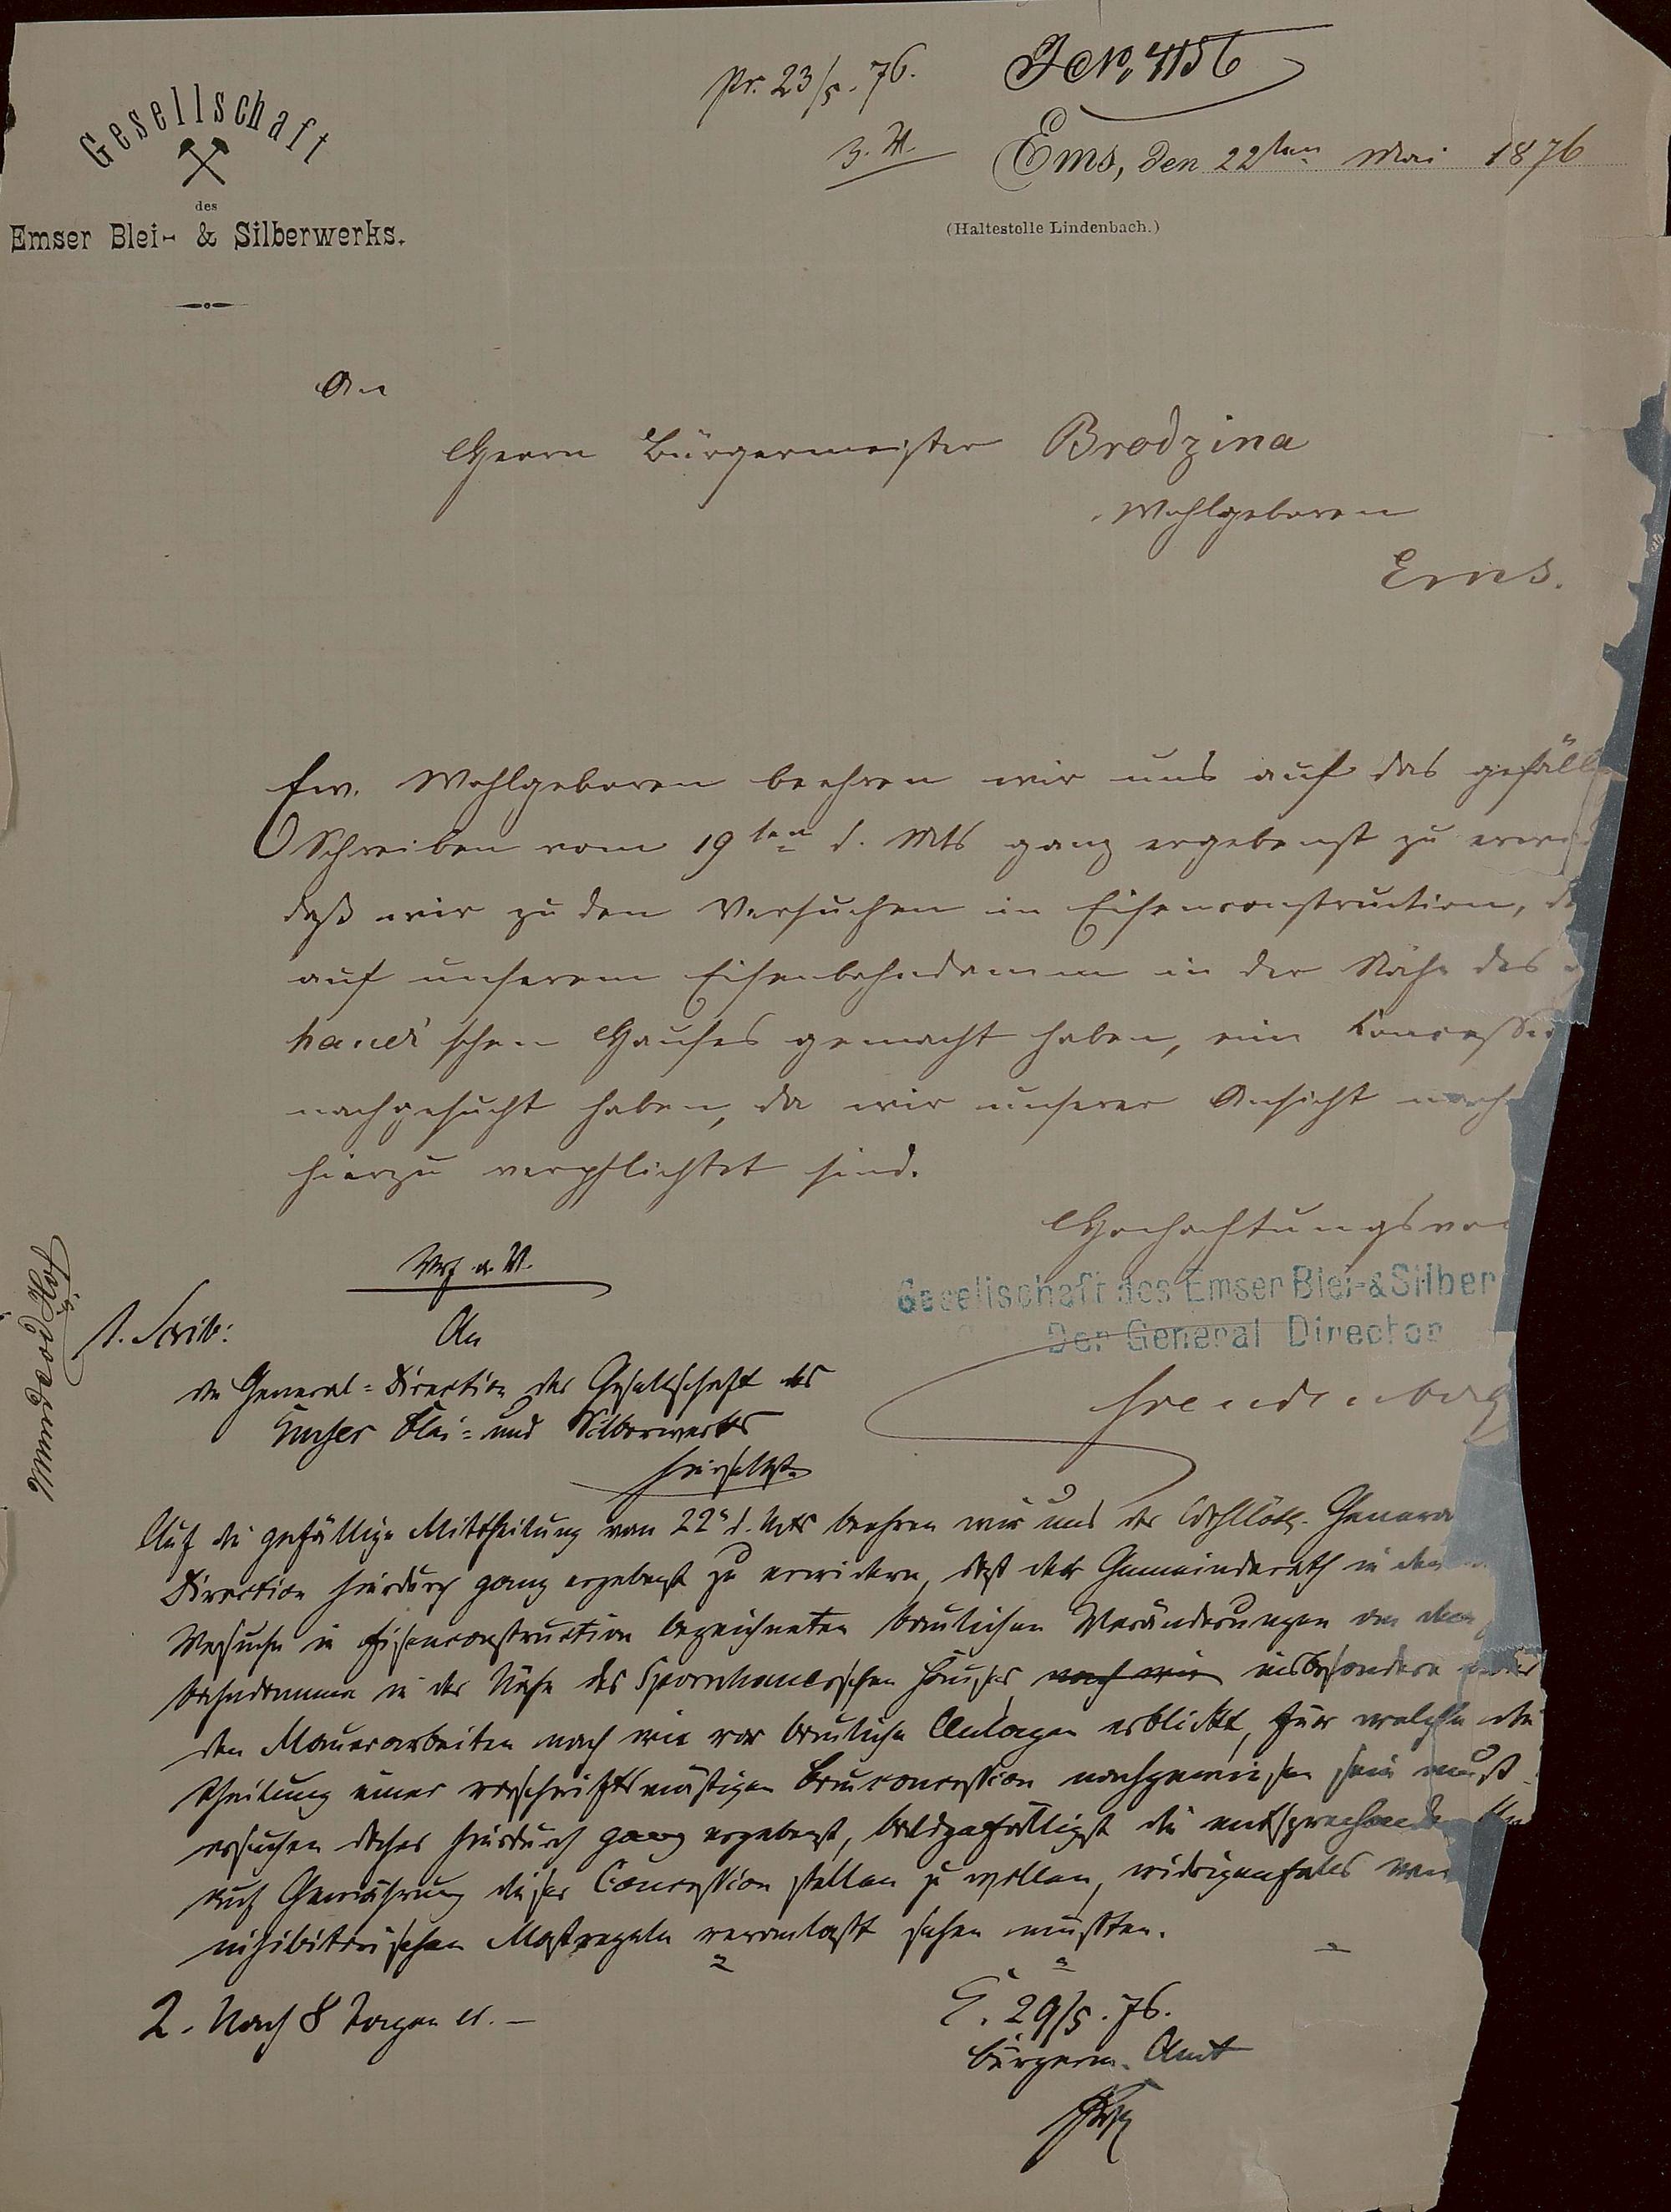 Gesellschaft
des
Emser Blei- & Silberwerks.
pr. 23/5. 76.
J.No. 4156
z. A.
Ems, den 22ten Mai 1876
(Haltestelle Lindenbach.)
An
Herrn Bürgermeister Brodzina
Wohlgeboren
Ems.
Ew. Wohlgeboren beehren wir uns auf das gefäll
Schreiben vom 19ten d. Mts ganz ergebenst zu erwi
daß wir zu den Versuchen in Eisenconstruction, d
auf unserem Eisenbahndamm in der Nähe des
hauer'schen Hauses gemacht haben, eine Concessio
nachgesucht haben, da wir unserer Ansicht nach
hierzu verpflichtet sind.
Hochachtungsvo
Gesellschaft des Emser Blei-& Silber
Der General Director
Freudenberg
1. Scrib:
An
die General-Direction der Gesellschaft des
Emser Blei- und Silberwerks
hierselbst
Auf die gefällige Mittheilung vom 22n d. Mts beehren wir uns der Wohllöbl. Genera
Direction hierdurch ganz ergebenst zu erwidern, daß der Gemeinderath in den
Versuche in Eisenconstruction bezeichneten baulichen Veränderungen an dem
bahndamme in der Nähe des Spornhauerschen Hauses, noch wie insbesondere
den Mauerarbeiten nach wie vor bauliche Anlagen erblickt, für welche die
theilung einer vorschriftsmäßigen Bauconcession nachgewiesen sein muß
ersuchen daher hierdurch ganz ergebenst, baldgefälligst die entsprechenden
auf Gewährung dieser Concession stellen zu wollen, widrigenfalls
inhibitorischen Maßregeln veranlaßt sehen müßten.
2. Nach 8 Tagen
E. 29/5. 76.
Bürgerm. Amt